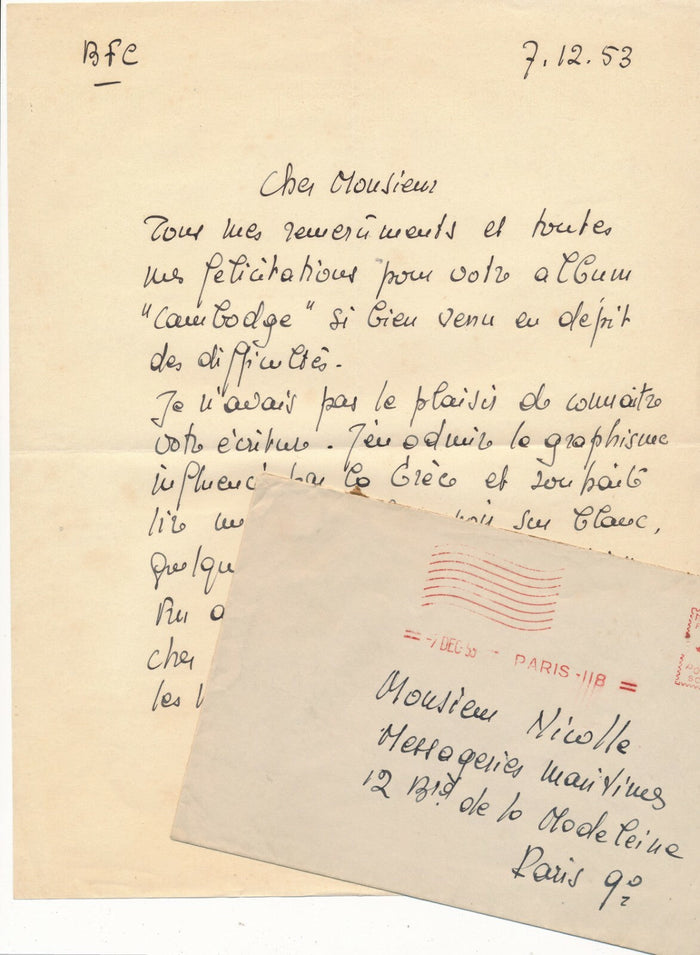 BFC
7.12.53
Cher Monsieur
Tous mes remerciments et toutes
mes félicitations pour votre album
"Cambodge" si bien venu en dépit
des difficultés.
Je n'avais pas le plaisir de connaître
votre écriture. J'en admire le graphisme
influencé par la Grèce et souhaite
lire
noir sur blanc,
quelqu
cher
les
= -7 DEC-53 - PARIS-11B =
Monsieur Nicolle
Messageries maritimes
12 Bd de la Madeleine
Paris 9e